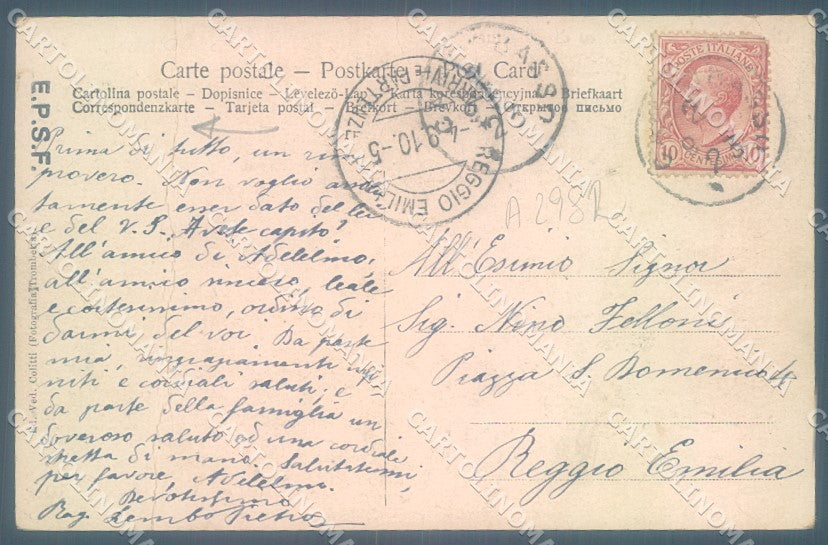 Carte postale – Postkarte – Post Card
Cartolina postale – Dopisnice – Levelező-Lap – Karta korespondencyjna – Briefkaart
Correspondenzkarte – Tarjeta postal – Brefkort – Brevkort – Открытое письмо
E.P.S.F.
Ed. Ved. Colitti (Fotografia Trombetta)
POSTE ITALIANE
10 CENTESIMI 10
REGGIO EMILIA
4.9.10.-5
A 2982
Prima di tutto, un rim
provero. Non voglio
tamente esser dato del lei
e del V. S. Avete capito?
All'amico di Adelelmo,
all'amico sincero, leale
e cortesissimo, ordina di
darmi del voi. Da parte
mia, infi
niti e cordiali saluti; e
da parte della famiglia un
doveroso saluto ed una cordiale
stretta di mano. Salutatemi,
per favore, Adelelmo.
Devotissimo
Rag. Lembo Pietro
All'Esimio Signor
Sig. Nino Felloni
Piazza S. Domenico 4
Reggio Emilia
CARTOLINOMANIA